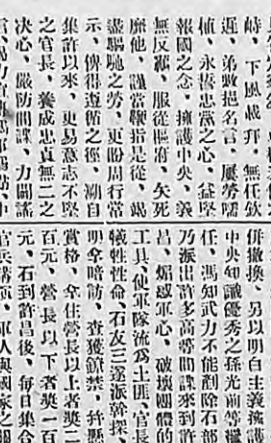 峙、下風載拜、無任欽
遲、弟數挹名言、屢勞嚅
植、永誓忠黨之心、益堅
報國之念、擁護中央、義
無反顧、服從樞府、矢死
靡他、謹當鞭指是從、竭
盡驅馳之勞、更盼周行當
示、俾得遵循之徑、溯自
集許以來、更易意志不堅
之官長、養成忠貞無二之
決心、嚴防間諜、力闢謠
併撤換、另以明白主義擁護
中央知識優秀之孫光前等繼
任、馮知武力不能剷除石部
乃派出許多高等間諜來到許
昌、煽惑軍心、破壞團體的
工具、使軍隊流為土匪、官長
犧牲性命、石友三遂派幹探、
明拿暗訪、查獲鐐禁、幷懸
賞格、拿住營長以上者獎二
百元、營長以下者獎一百
元、石到許昌後、每日集合
官兵講演、軍人與國家之關